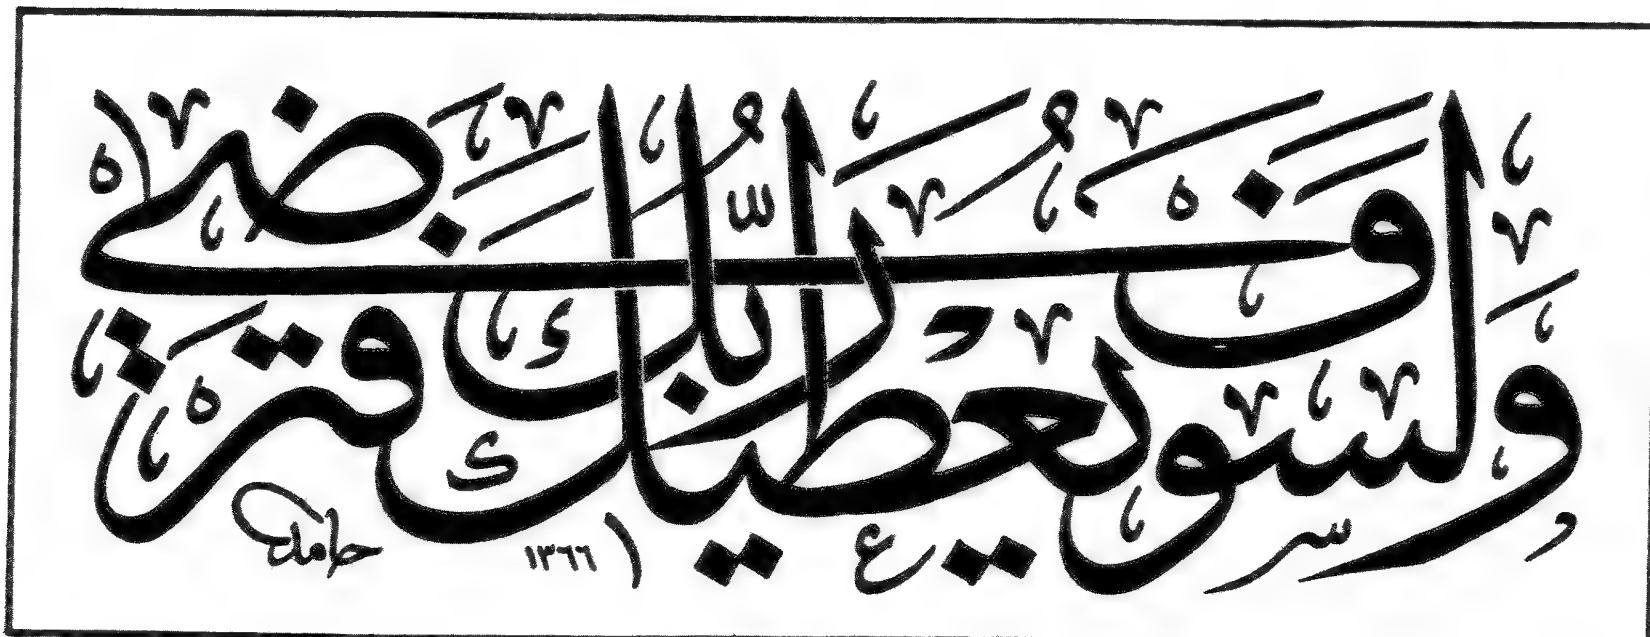 وَلَسَوْفَ يُعْطِيكَ رَبُّكَ فَتَرْضَى
حامد ١٣٦٦